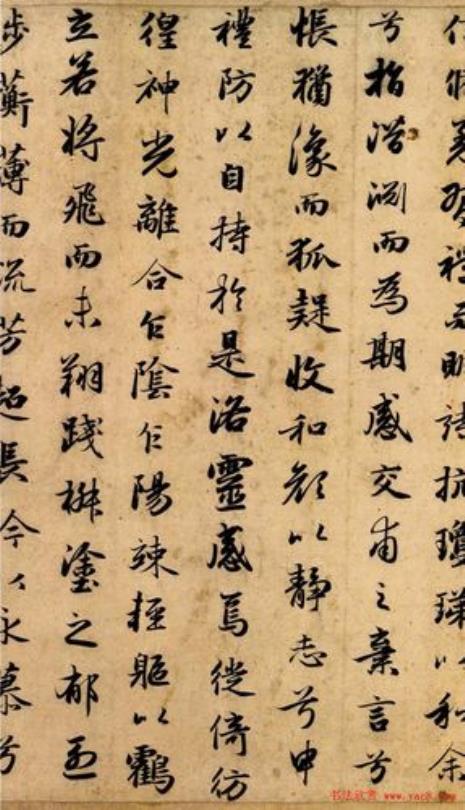 信脩羌習禮而明詩抗瓊珶以和余
兮指潛淵而為期感交甫之棄言兮
悵猶豫而狐疑收和顏以靜志兮申
禮防以自持於是洛靈感焉徙倚彷
徨神光離合乍陰乍陽竦輕軀以鶴
立若將飛而未翔踐椒塗之郁烈
步蘅薄而流芳超長吟以永慕兮
书法欣赏 www.yac8.com